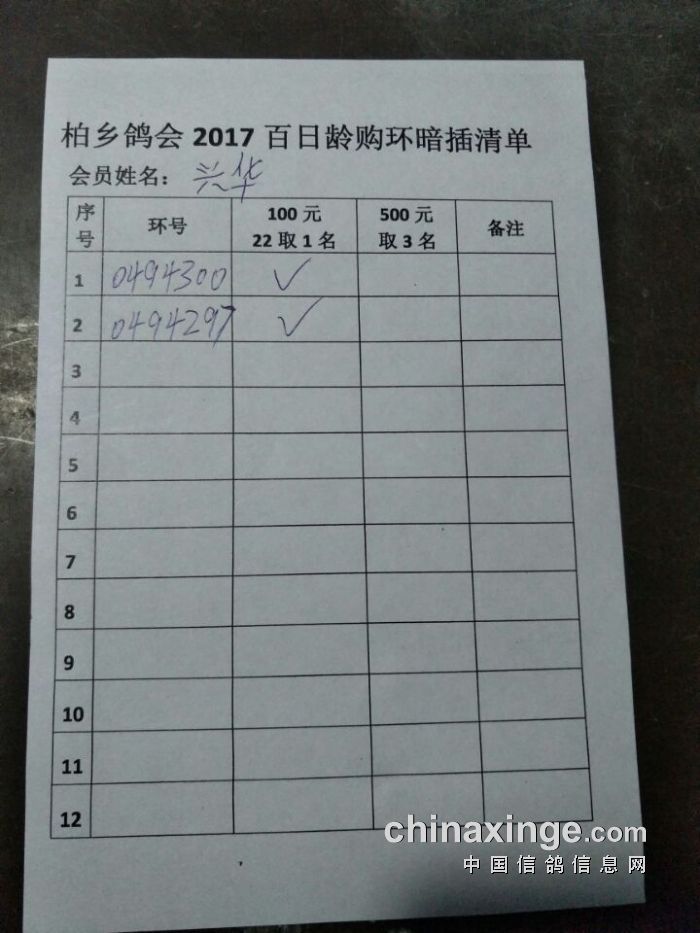 柏乡鸽会 2017 百日龄购环暗插清单
会员姓名： 兴华
序号 环号 100 元 22 取 1 名 500 元 取 3 名 备注
1 0494300 ✓
2 0494297 ✓
3
4
5
6
7
8
9
10
11
12
chinaxinge.com
中国信鸽信息网